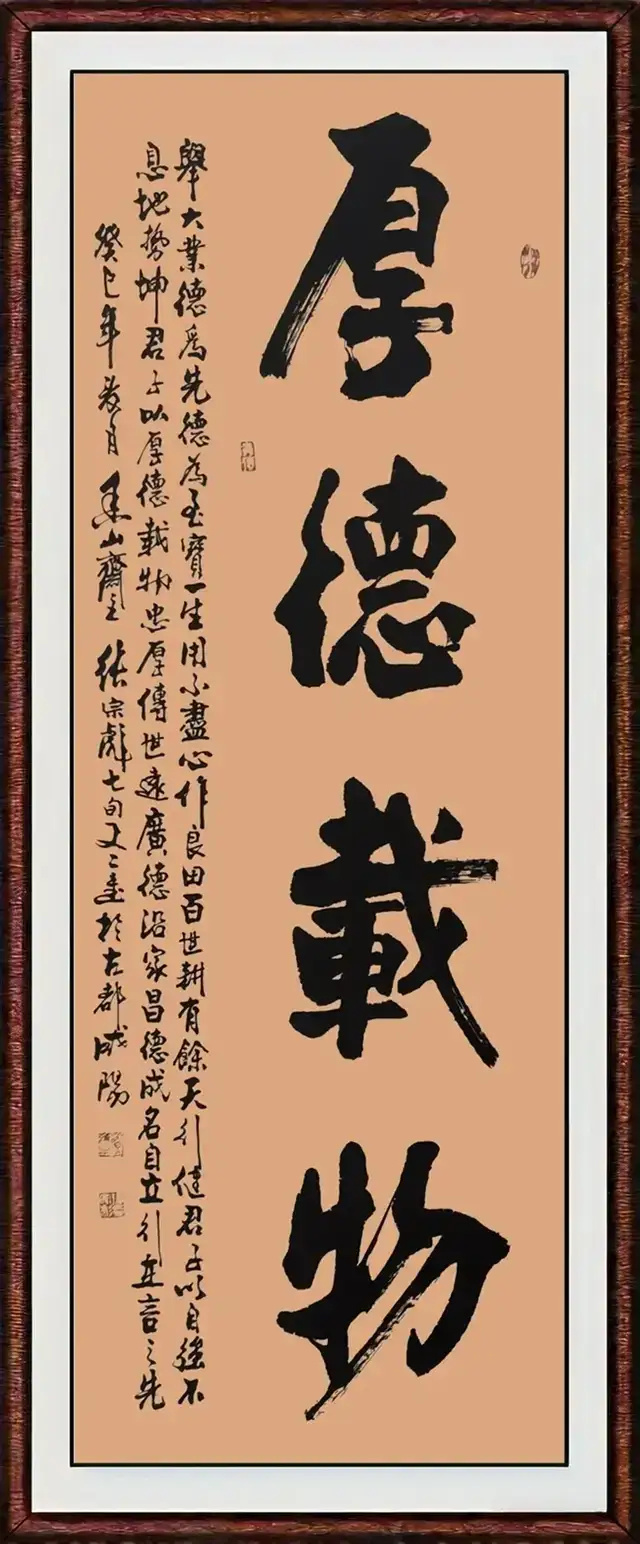 厚德載物
舉大業德爲先德為至寶一生用不盡心作良田百世耕有餘天行健君子以自強不
息地勢坤君子以厚德載物忠厚傳世遠廣德沿家昌德成名自立行在言之先
癸巳年 月 山齋主張宗彪七旬又二書於古都咸陽